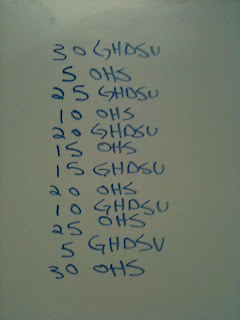 30 GHDSU
5 OHS
25 GHDSU
10 OHS
20 GHDSU
15 OHS
15 GHDSU
20 OHS
10 GHDSU
25 OHS
5 GHDSU
30 OHS